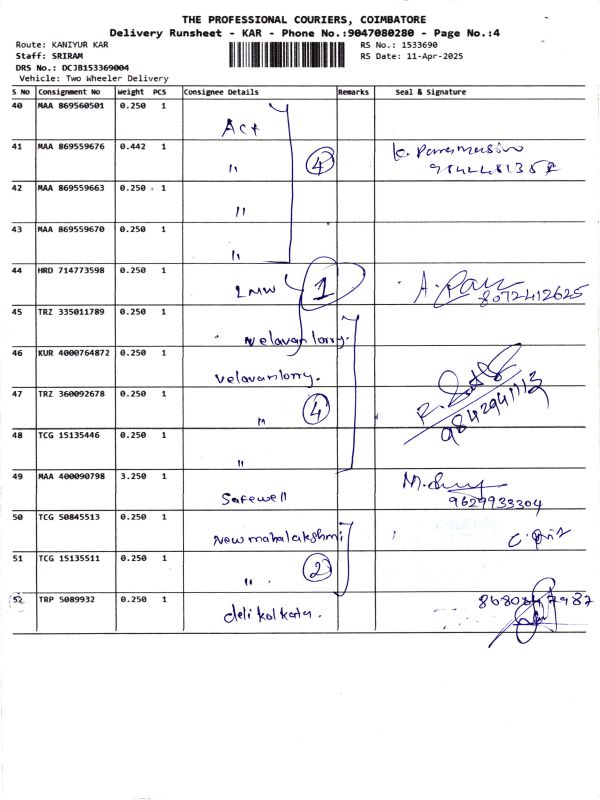 THE PROFESSIONAL COURIERS, COIMBATORE
Delivery Runsheet - KAR - Phone No.:9047080280 - Page No.:4
Route: KANIYUR KAR
RS No.: 1533690
Staff: SRIRAM
RS Date: 11-Apr-2025
DRS No.: DCJB153369004
Vehicle: Two Wheeler Delivery
S No Consignment No Weight PCS Consignee Details Remarks Seal & Signature
40 MAA 869560501 0.250 1 Act
41 MAA 869559676 0.442 1 " 4
42 MAA 869559663 0.250 1 "
43 MAA 869559670 0.250 1 "
44 HRD 714773598 0.250 1 LMW 1 8072412625
45 TRZ 335011789 0.250 1 velavan lorry.
46 KUR 4000764872 0.250 1 velavan lorry.
47 TRZ 360092678 0.250 1 " 4 9842941113
48 TCG 15135446 0.250 1 "
49 MAA 400090798 3.250 1 Safewell 9629933304
50 TCG 50845513 0.250 1 New mahalakshmi
51 TCG 15135511 0.250 1 " 2
52 TRP 5089932 0.250 1 deli kolkata.